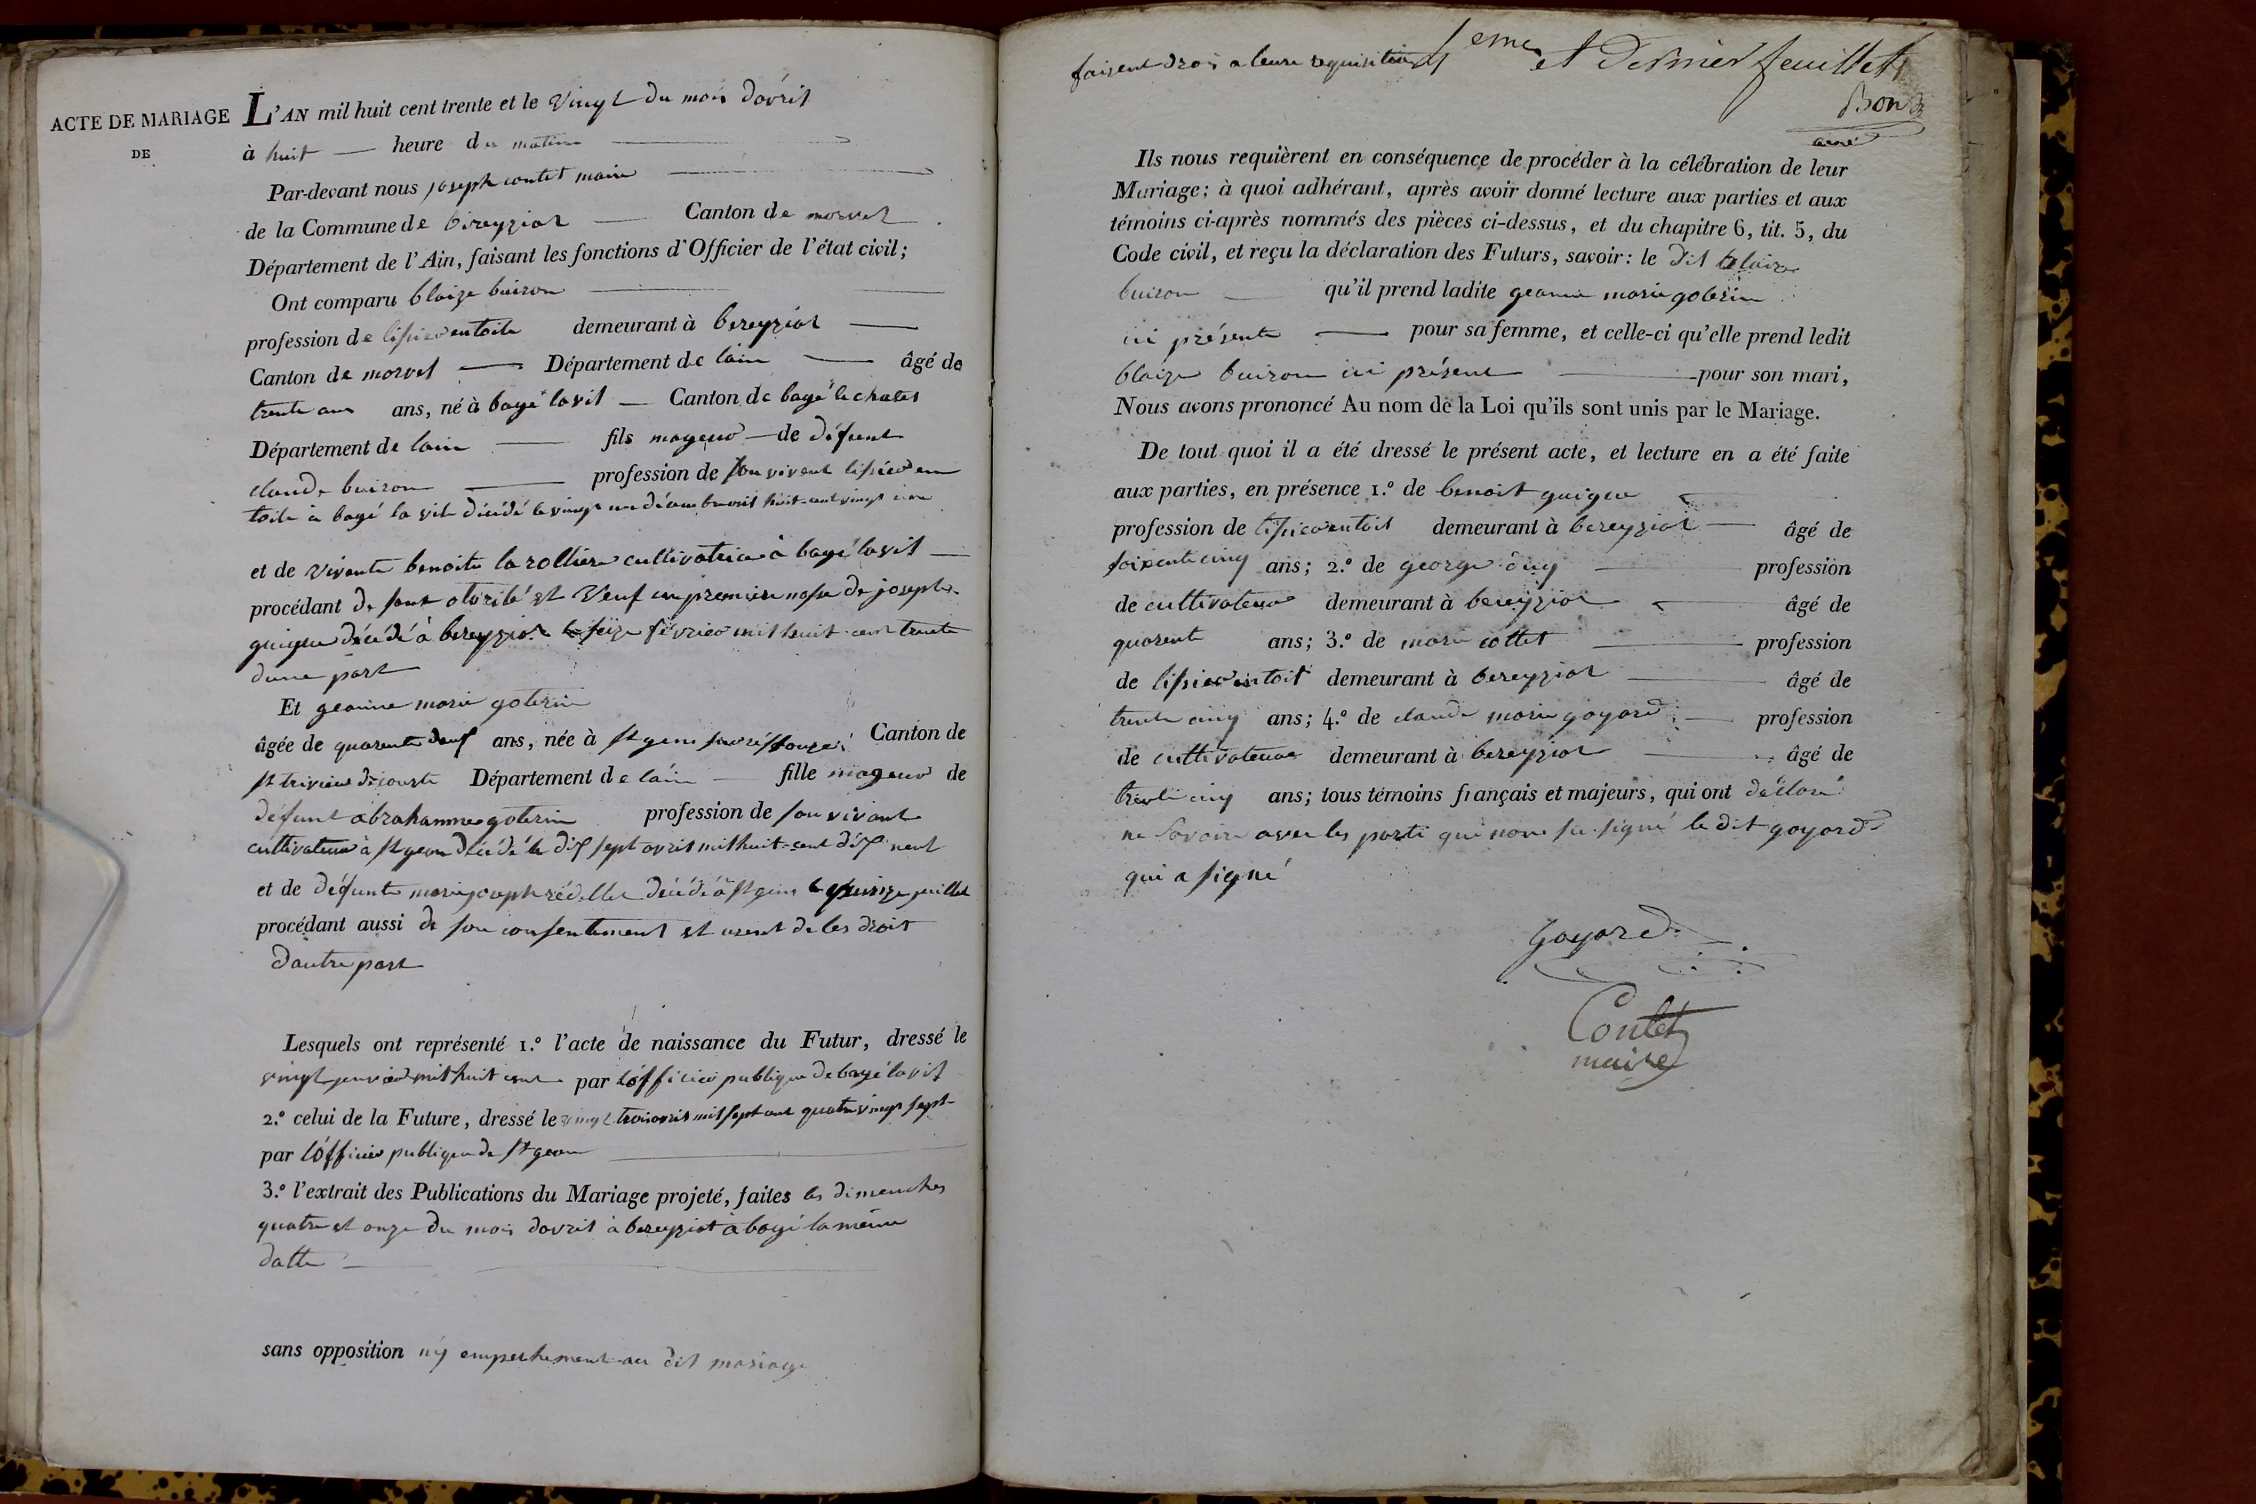 ACTE DE MARIAGE
DE
L'AN mil huit cent trente et le vingt du mois davril
à huit heure du matin
Par-devant nous joseph contet maire
de la Commune de bereyziat Canton de morvet
Département de l'Ain, faisant les fonctions d'Officier de l'état civil;
Ont comparu blaize buiron
profession de tissier en toile demeurant à bereyziat
Canton de morvet Département de lain âgé de
trente ans ans, né à bagé lavil Canton de bagé le chatel
Département de lain fils mageur de défunt
claude buiron profession de son vivant tissier en
toile à bagé la vile décédé le vingt un décembre mil huit cent vingt
et de vivante benoite la rollier cultivatrice à bagé lavil
procédant de sont otorité et Veuf en premier nosse de joseph
guigue décédé à bereyziat le seize février mil huit cent trente
dune part
Et geanne marie goterin
âgée de quarente deuf ans, née à st genis sur ressouze Canton de
st trivier de courte Département de lain fille mageur de
défunt abrahamme goterin profession de son vivant
cultivateur à st gean décédé le dix sept avril mil huit cent dix neuf
et de défunte marie joseph rédellet décédé à st genis le quinze juillet
procédant aussi de son consentement et usent de les droit
dautre part
Lesquels ont représenté 1.º l'acte de naissance du Futur, dressé le
vingt janvier mil huit cent par lófficier publique de bagé lavil
2.º celui de la Future, dressé le vingt trois avril mil sept cent quatre vingt sept
par lófficier publique de st gean
3.º l'extrait des Publications du Mariage projeté, faites les dimenches
quatre et onze du mois davril à bereyziat à bagé la même
datte
sans opposition ny empechement au dit mariage
faisent droi a leure requisition
4eme et Dernier feuillet
Bon
Ils nous requièrent en conséquence de procéder à la célébration de leur
Mariage; à quoi adhérant, après avoir donné lecture aux parties et aux
témoins ci-après nommés des pièces ci-dessus, et du chapitre 6, tit. 5, du
Code civil, et reçu la déclaration des Futurs, savoir: le dit blaize
buiron qu'il prend ladite geanne marie goterin
ici présente pour sa femme, et celle-ci qu'elle prend ledit
blaize buiron ici présent pour son mari,
Nous avons prononcé Au nom de la Loi qu'ils sont unis par le Mariage.
De tout quoi il a été dressé le présent acte, et lecture en a été faite
aux parties, en présence 1.º de benoit guigue
profession de tissier en toil demeurant à bereyziat âgé de
soixente cinq ans; 2.º de george duy profession
de cultivateur demeurant à bereyziat âgé de
quarent ans; 3.º de marie cottet profession
de tissier en toil demeurant à bereyziat âgé de
trente cinq ans; 4.º de claude marie goyard profession
de cultivateur demeurant à bereyziat âgé de
trente cinq ans; tous témoins français et majeurs, qui ont déclaré
ne savoir avec les parti que nous signé le dit goyard
qui a signé
Goyard
Contet
maire